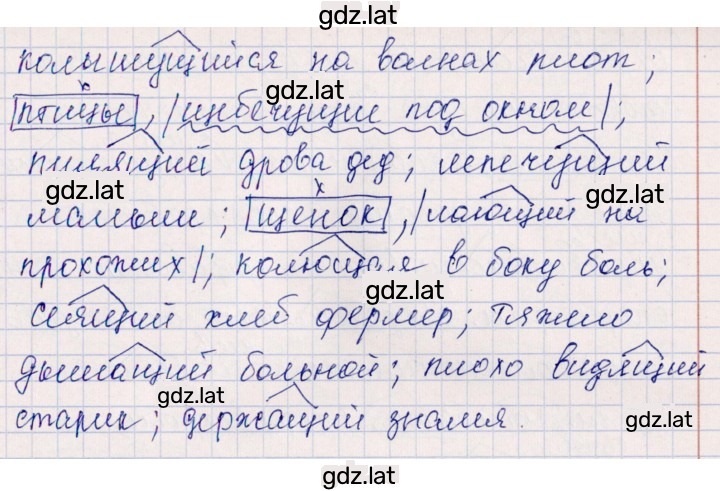 gdz.lat
колышущийся на волнах плот;
gdz.lat
птицы, /щебечущии под окном/;
gdz.lat
пилящий дрова дед; лепечущий
gdz.lat gdz.lat
малыш; щенок, /лающий на
прохожих/; колющая в боку боль;
gdz.lat
сеящий хлеб фермер; тяжело
дышащий больной; плохо видящий
gdz.lat
старик; держащий знамя.
gdz.lat
gdz.lat